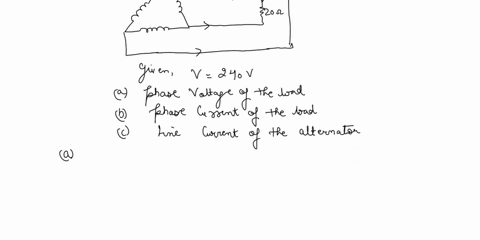 20Ω
Given, V = 240 V
(a) Phase Voltage of the load
(b) Phase Current of the load
(c) Line Current of the alternator
(a)